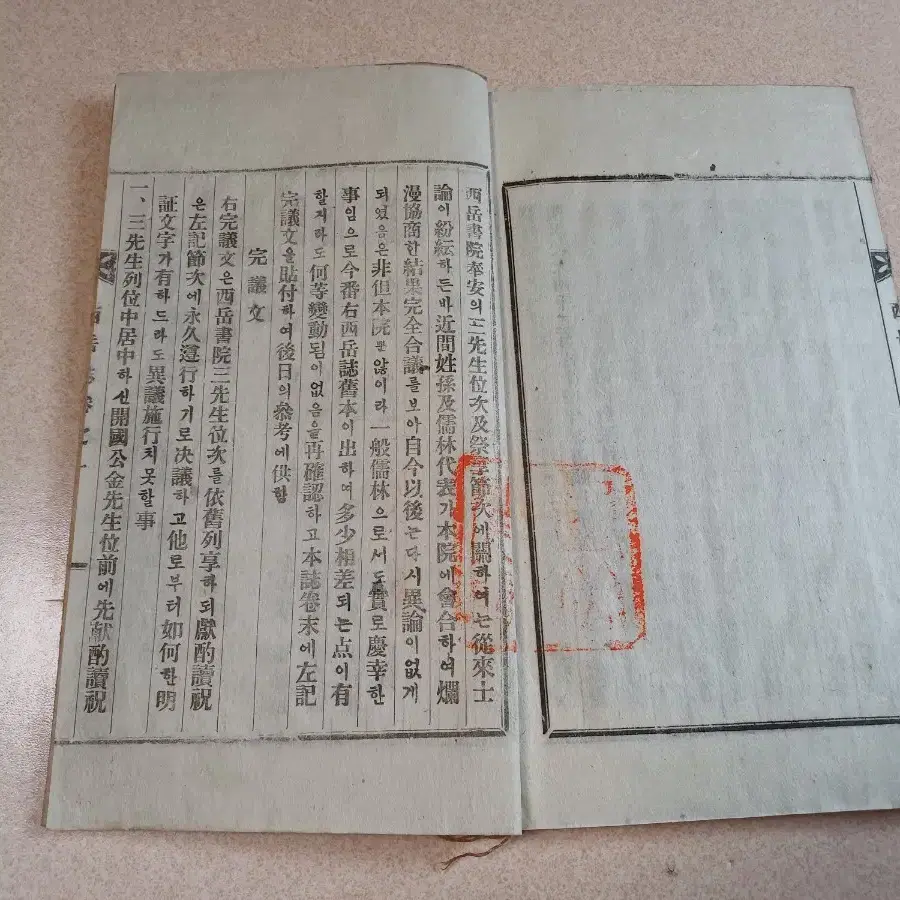 西岳書院奉安의三先生位次及祭享節次에關하여는從來士
論이紛紜하든바近間姓孫及儒林代表가本院에會合하여爛
漫協商한結果完全合議를보아自今以後는다시異論이없게
되였음은非但本院뿐않이라一般儒林으로서도實로慶幸한
事임으로今番右西岳誌舊本이出하여多少相差되는点이有
할지라도何等變動됨이없음을再確認하고本誌卷末에左記
完議文을貼付하여後日의參考에供함
完議文
右完議文은西岳書院三先生位次를依舊列享하되獻酌讀祝
은左記節次에永久遵行하기로决議하고他로부터如何한明
証文字가有하드라도異議施行치못할事
一、三先生列位中居中하신開國公金先生位前에先献酌讀祝
西岳志卷之
西岳